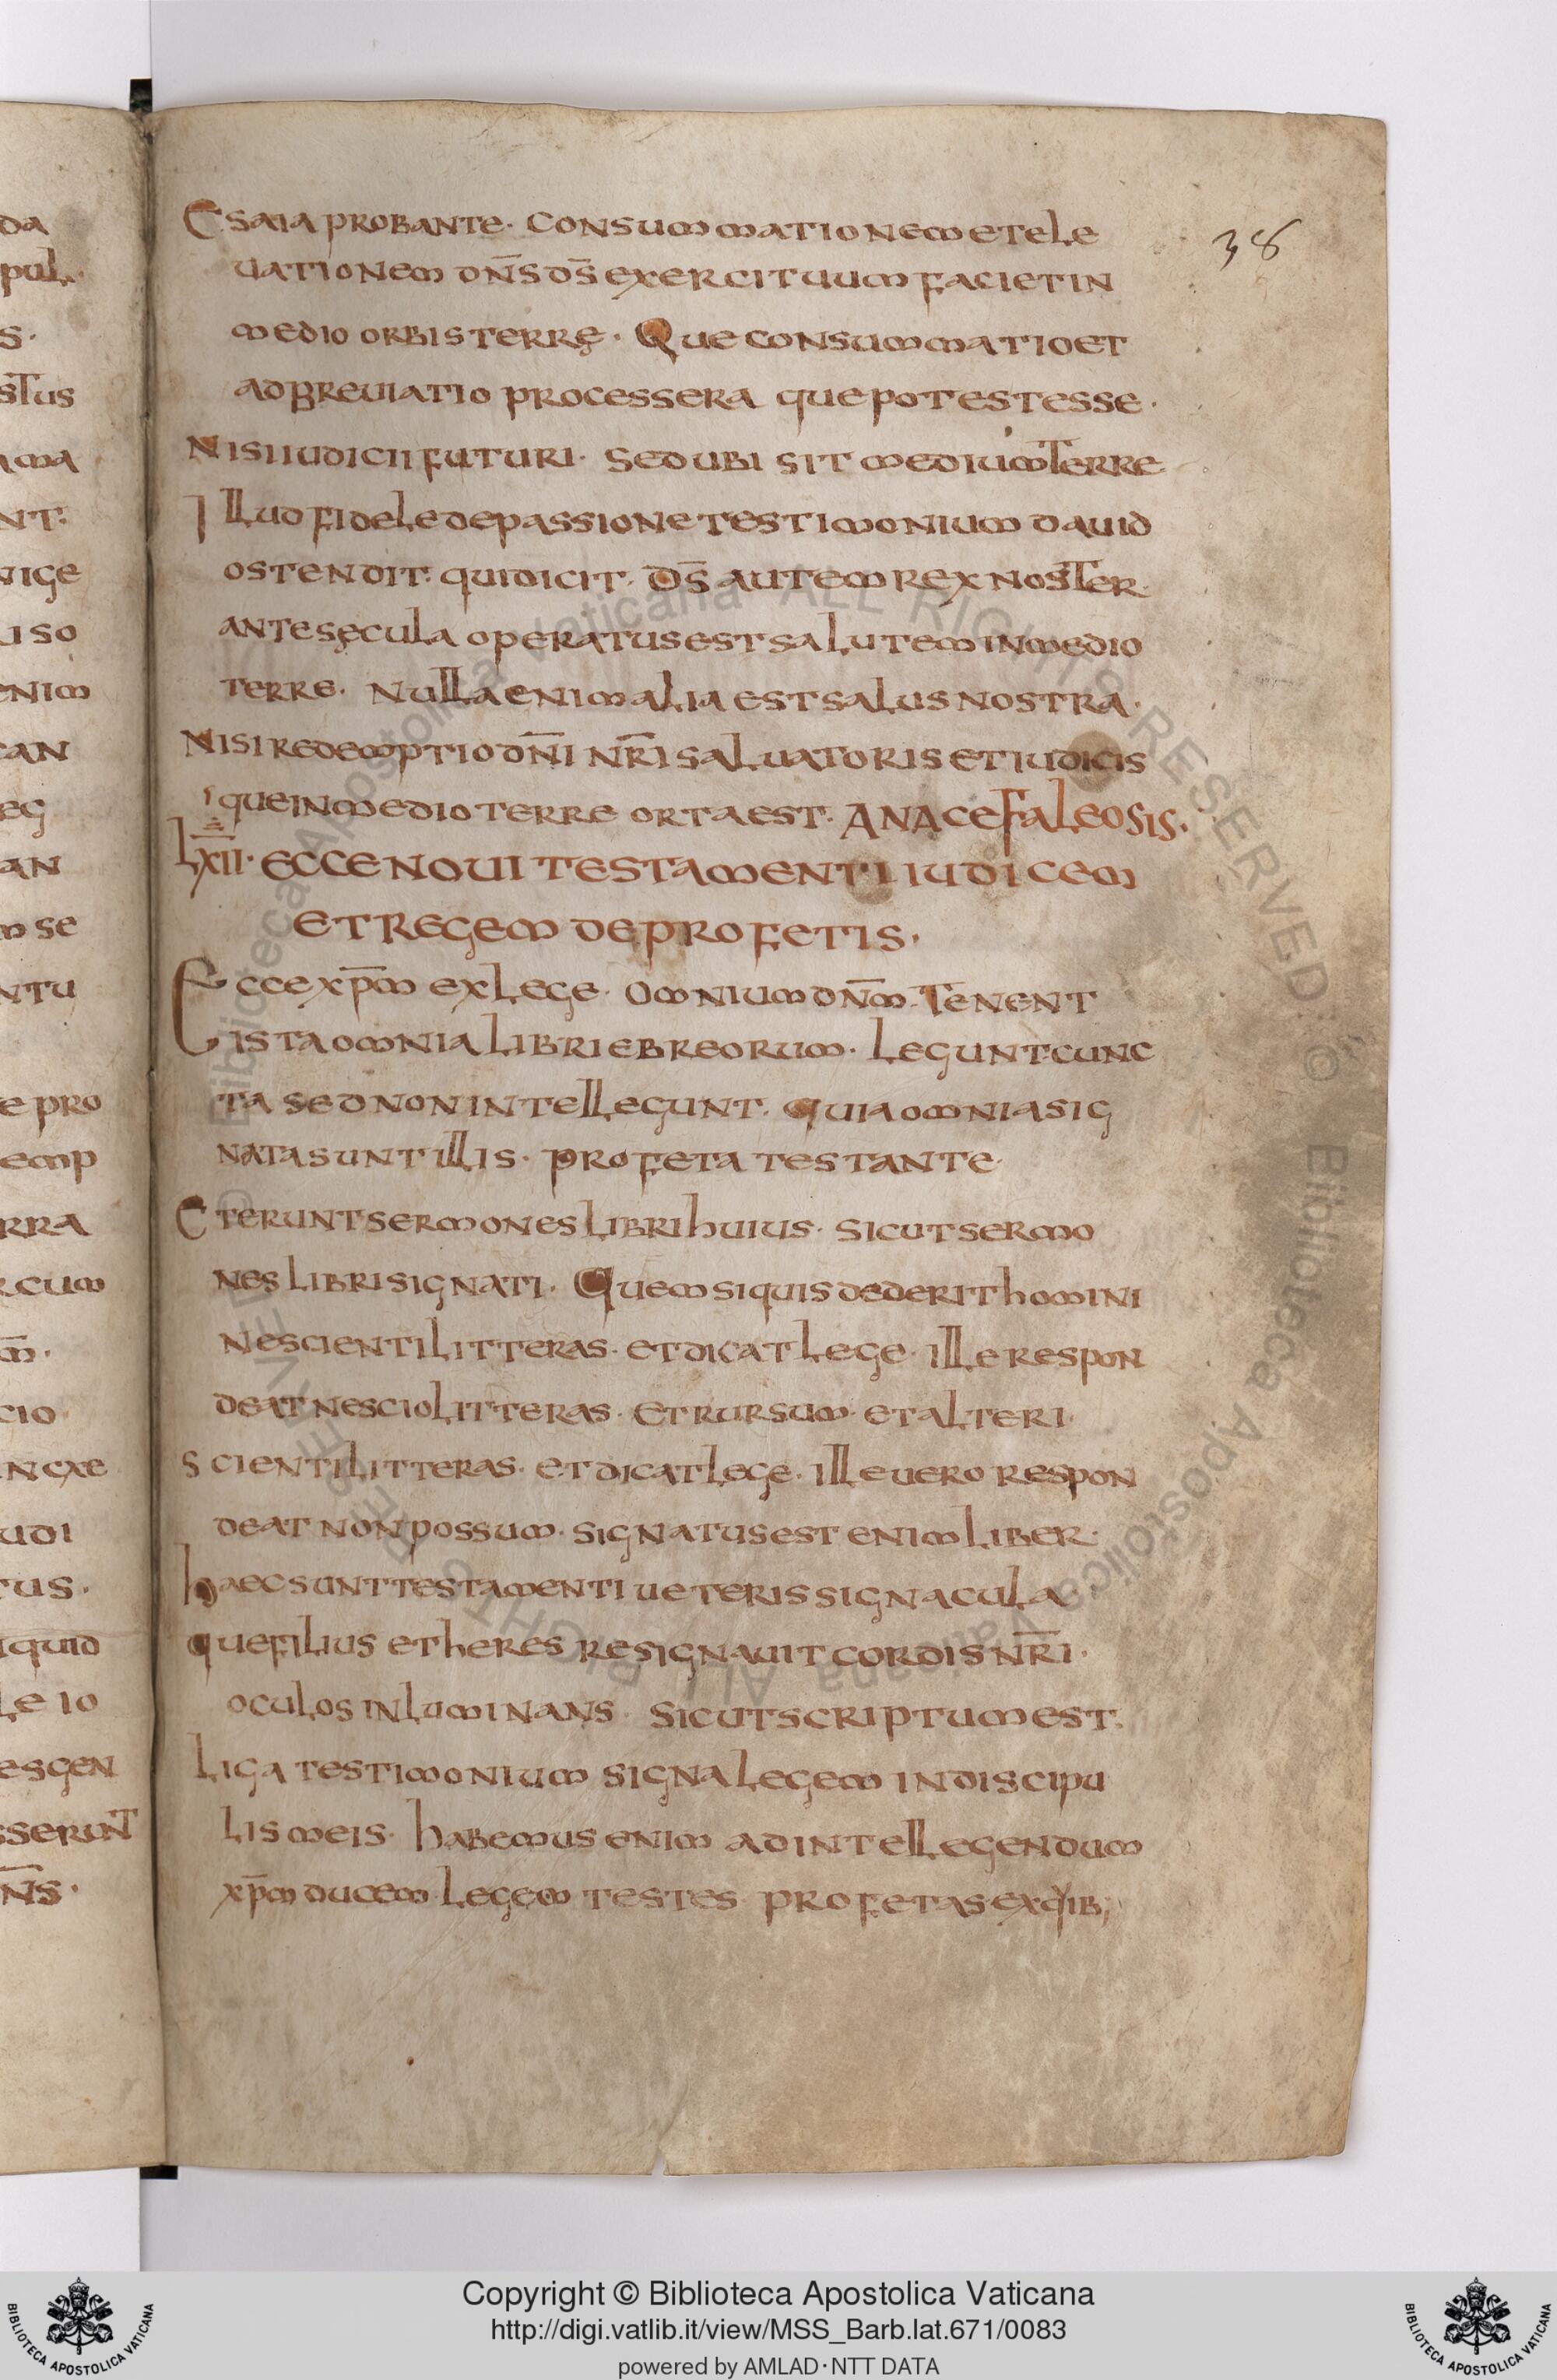 da
pul.
s.
stus
ama
nt.
nige
iso
enim
can
eg
an
m se
ntu
e pro
emp
rra
rcum
m̄.
cio
n exe
udi
tus.
iquid
le io
esgen
sserunt
n̄s.
38
Esaia probante. consummationem et ele
uationem dn̄s ds̄ exercituum faciet in
medio orbis terrę. Que consummatio et
adbreuiatio processera que potest esse.
Nisi iudicii futuri. sed ubi sit medium terre
Illud fidele de passione testimonium dauid
ostendit. qui dicit. ds̄ autem rex noster.
ante sęcula operatus est salutem in medio
terre. Nulla enim alia est salus nostra.
Nisi redemptio dn̄i nr̄i saluatoris et iudicis
que in medio terre orta est. Anacefaleosis.
lxii. Ecce noui testamenti iudicem
et regem de profetis.
Ecce xp̄m ex lege. omnium dn̄m. Tenent
ista omnia libri ebreorum. legunt cunc
ta sed non intellegunt. quia omnia sig
nata sunt illis. profeta testante.
Eterunt sermones libri huius. sicut sermo
nes libri signati. Quem si quis dederit homini
nescienti litteras. et dicat lege. ille respon
deat nescio litteras. et rursum. et alteri
scienti litteras. et dicat lege. ille uero respon
deat non possum. signatus est enim liber.
haec sunt testamenti ueteris signacula
que filius et heres resignauit cordis nr̄i.
oculos inluminans. sicut scriptum est.
Liga testimonium signa legem in discipu
lis meis. habemus enim ad intellegendum
xp̄m ducem legem testes profetas ex quib;
© Biblioteca Apostolica Vaticana ALL RIGHTS RESERVED
Copyright © Biblioteca Apostolica Vaticana
http://digi.vatlib.it/view/MSS_Barb.lat.671/0083
powered by AMLAD·NTT DATA
BIBLIOTECA APOSTOLICA VATICANA
BIBLIOTECA APOSTOLICA VATICANA